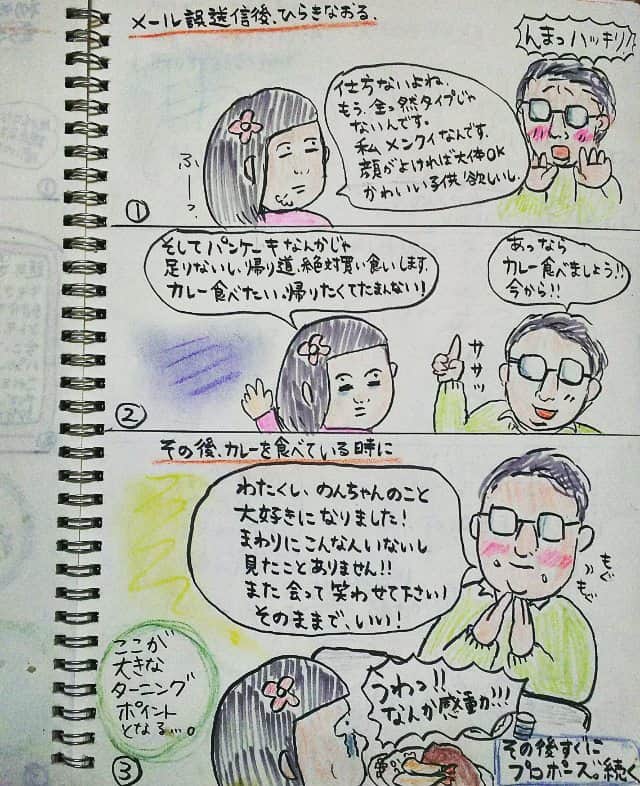 メール誤送信後、ひらきなおる。
んまっハッキリ!!
仕方ないよね、
もう、全っ然タイプじゃ
ないんです。
私メンクイなんです。
顔がよければ大体OK
かわいい子供欲しいし、
ふーっ、
①
そしてパンケーキなんかじゃ
足りないし、帰り道、絶対買い食いします。
カレー食べたい、帰りたくてたまんない!
あっなら
カレー食べましょう!!
今から!!
ササッ
②
その後、カレーを食べている時に
わたくし、のんちゃんのこと
大好きになりました!
まわりにこんな人いないし
見たことありません!!
また会って笑わせて下さい!
そのままで、いい!
もぐ
もぐ
ここが
大きな
ターニング
ポイント
となる…。
うわっ!!
なんか感動!!!
③
その後すぐに
プロポーズ。続く